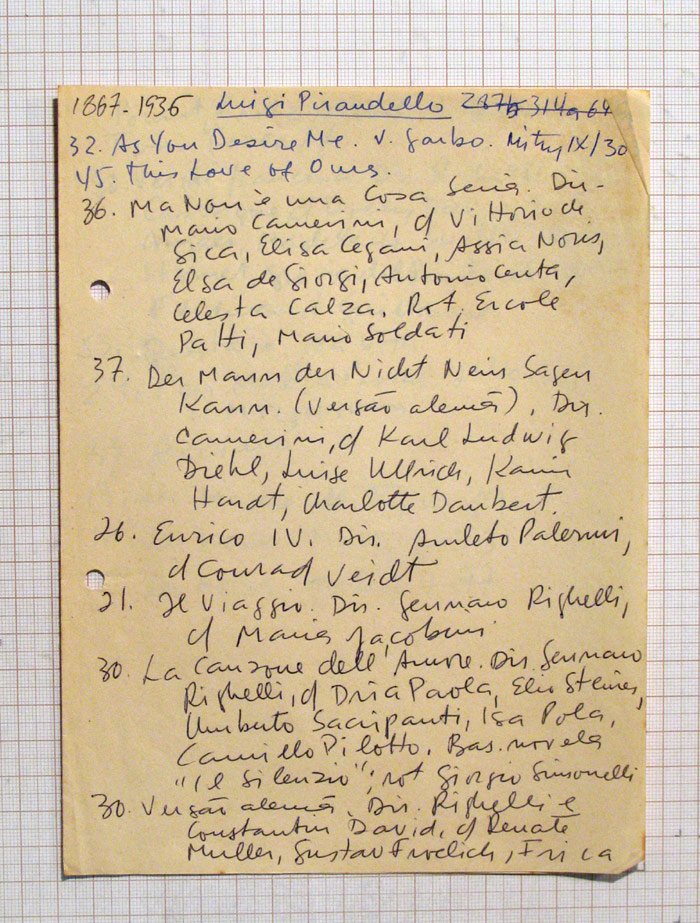 1867-1936 Luigi Pirandello 287b 314a 64
32. As You Desire Me. v. Garbo. Mitry IX/30
45. This Love of Ours.
36. Ma Non è una Cosa Seria. Dir-
Mario Camerini, d Vittorio de
Sica, Elisa Cegani, Assia Noris,
Elsa de Giorgi, Antonio Centa,
Celesta Calza. Rot. Ercole
Patti, Mario Soldati
37. Der Mann der Nicht Nein Sagen
Kann. (versão alemã), Dir.
Camerini, d Karl Ludwig
Diehl, Luise Ullrich, Karin
Hardt, Charlotte Daubert.
26. Enrico IV. Dir. Amleto Palermi,
d Conrad Veidt
21. Il Viaggio. Dir. Gennaro Righelli,
d Maria Jacobini
30. La Canzone dell'Amore. Dir. Gennaro
Righelli, d Dria Paola, Elio Steiner,
Umberto Sacripanti, Isa Pola,
Camillo Pilotto. Bas. novela
"Il Silenzio"; rot Giorgio Simonelli
30. Versão alemã. Dir. Righelli e
Constantin David, d Renate
Muller, Gustav Froelich,